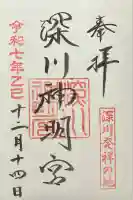 奉拝
深川発祥の地
深川神明宮
令和七年乙巳
十二月十四日